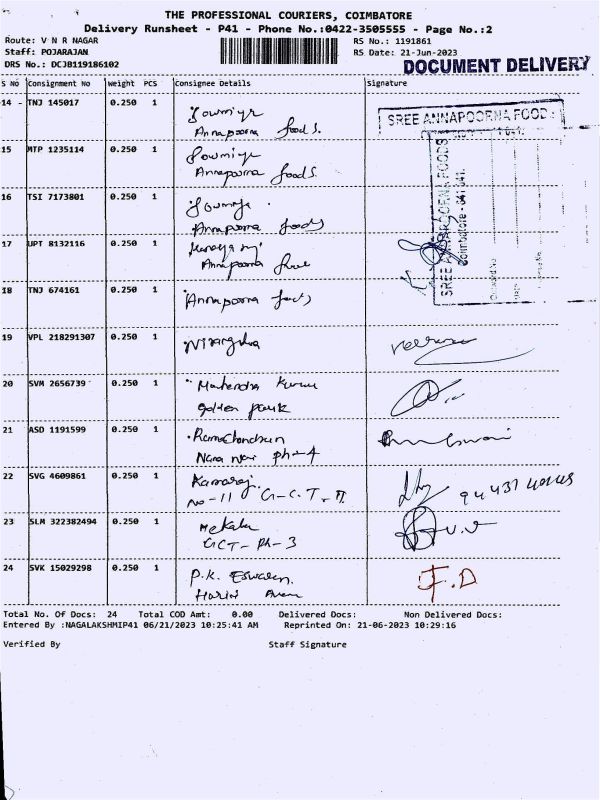 THE PROFESSIONAL COURIERS, COIMBATORE
Delivery Runsheet - P41 - Phone No.:0422-3505555 - Page No.:2
Route: V N R NAGAR RS No.: 1191861
Staff: POJARAJAN RS Date: 21-Jun-2023
DRS No.: DCJB119186102 DOCUMENT DELIVERY
S NO Consignment No Weight PCS Consignee Details Signature
14 - TNJ 145017 0.250 1 Sowmiya
Annapoorna foods.
SREE ANNAPOORNA FOOD
15 MTP 1235114 0.250 1 Sowmiya
Annapoorna foods.
SREE ANNAPOORNA FOODS
Coimbatore - 641 041.
16 TSI 7173801 0.250 1 Sowmiya.
Annapoorna foods
17 UPT 8132116 0.250 1
Annapoorna
18 TNJ 674161 0.250 1 Annapoorna foods
19 VPL 218291307 0.250 1
20 SVM 2656739 0.250 1 Mahendra Kumar
golden park
21 ASD 1191599 0.250 1 Ramachandran
Nana Nani ph-4
22 SVG 4609861 0.250 1 Kamaraj.
No-11 G.C.T.
23 SLM 322382494 0.250 1 Mekala
GCT- Ph-3
24 SVK 15029298 0.250 1 P.K. Eswaren.
Harini
Total No. Of Docs: 24 Total COD Amt: 0.00 Delivered Docs: Non Delivered Docs:
Entered By :NAGALAKSHMIP41 06/21/2023 10:25:41 AM Reprinted On: 21-06-2023 10:29:16
Verified By Staff Signature